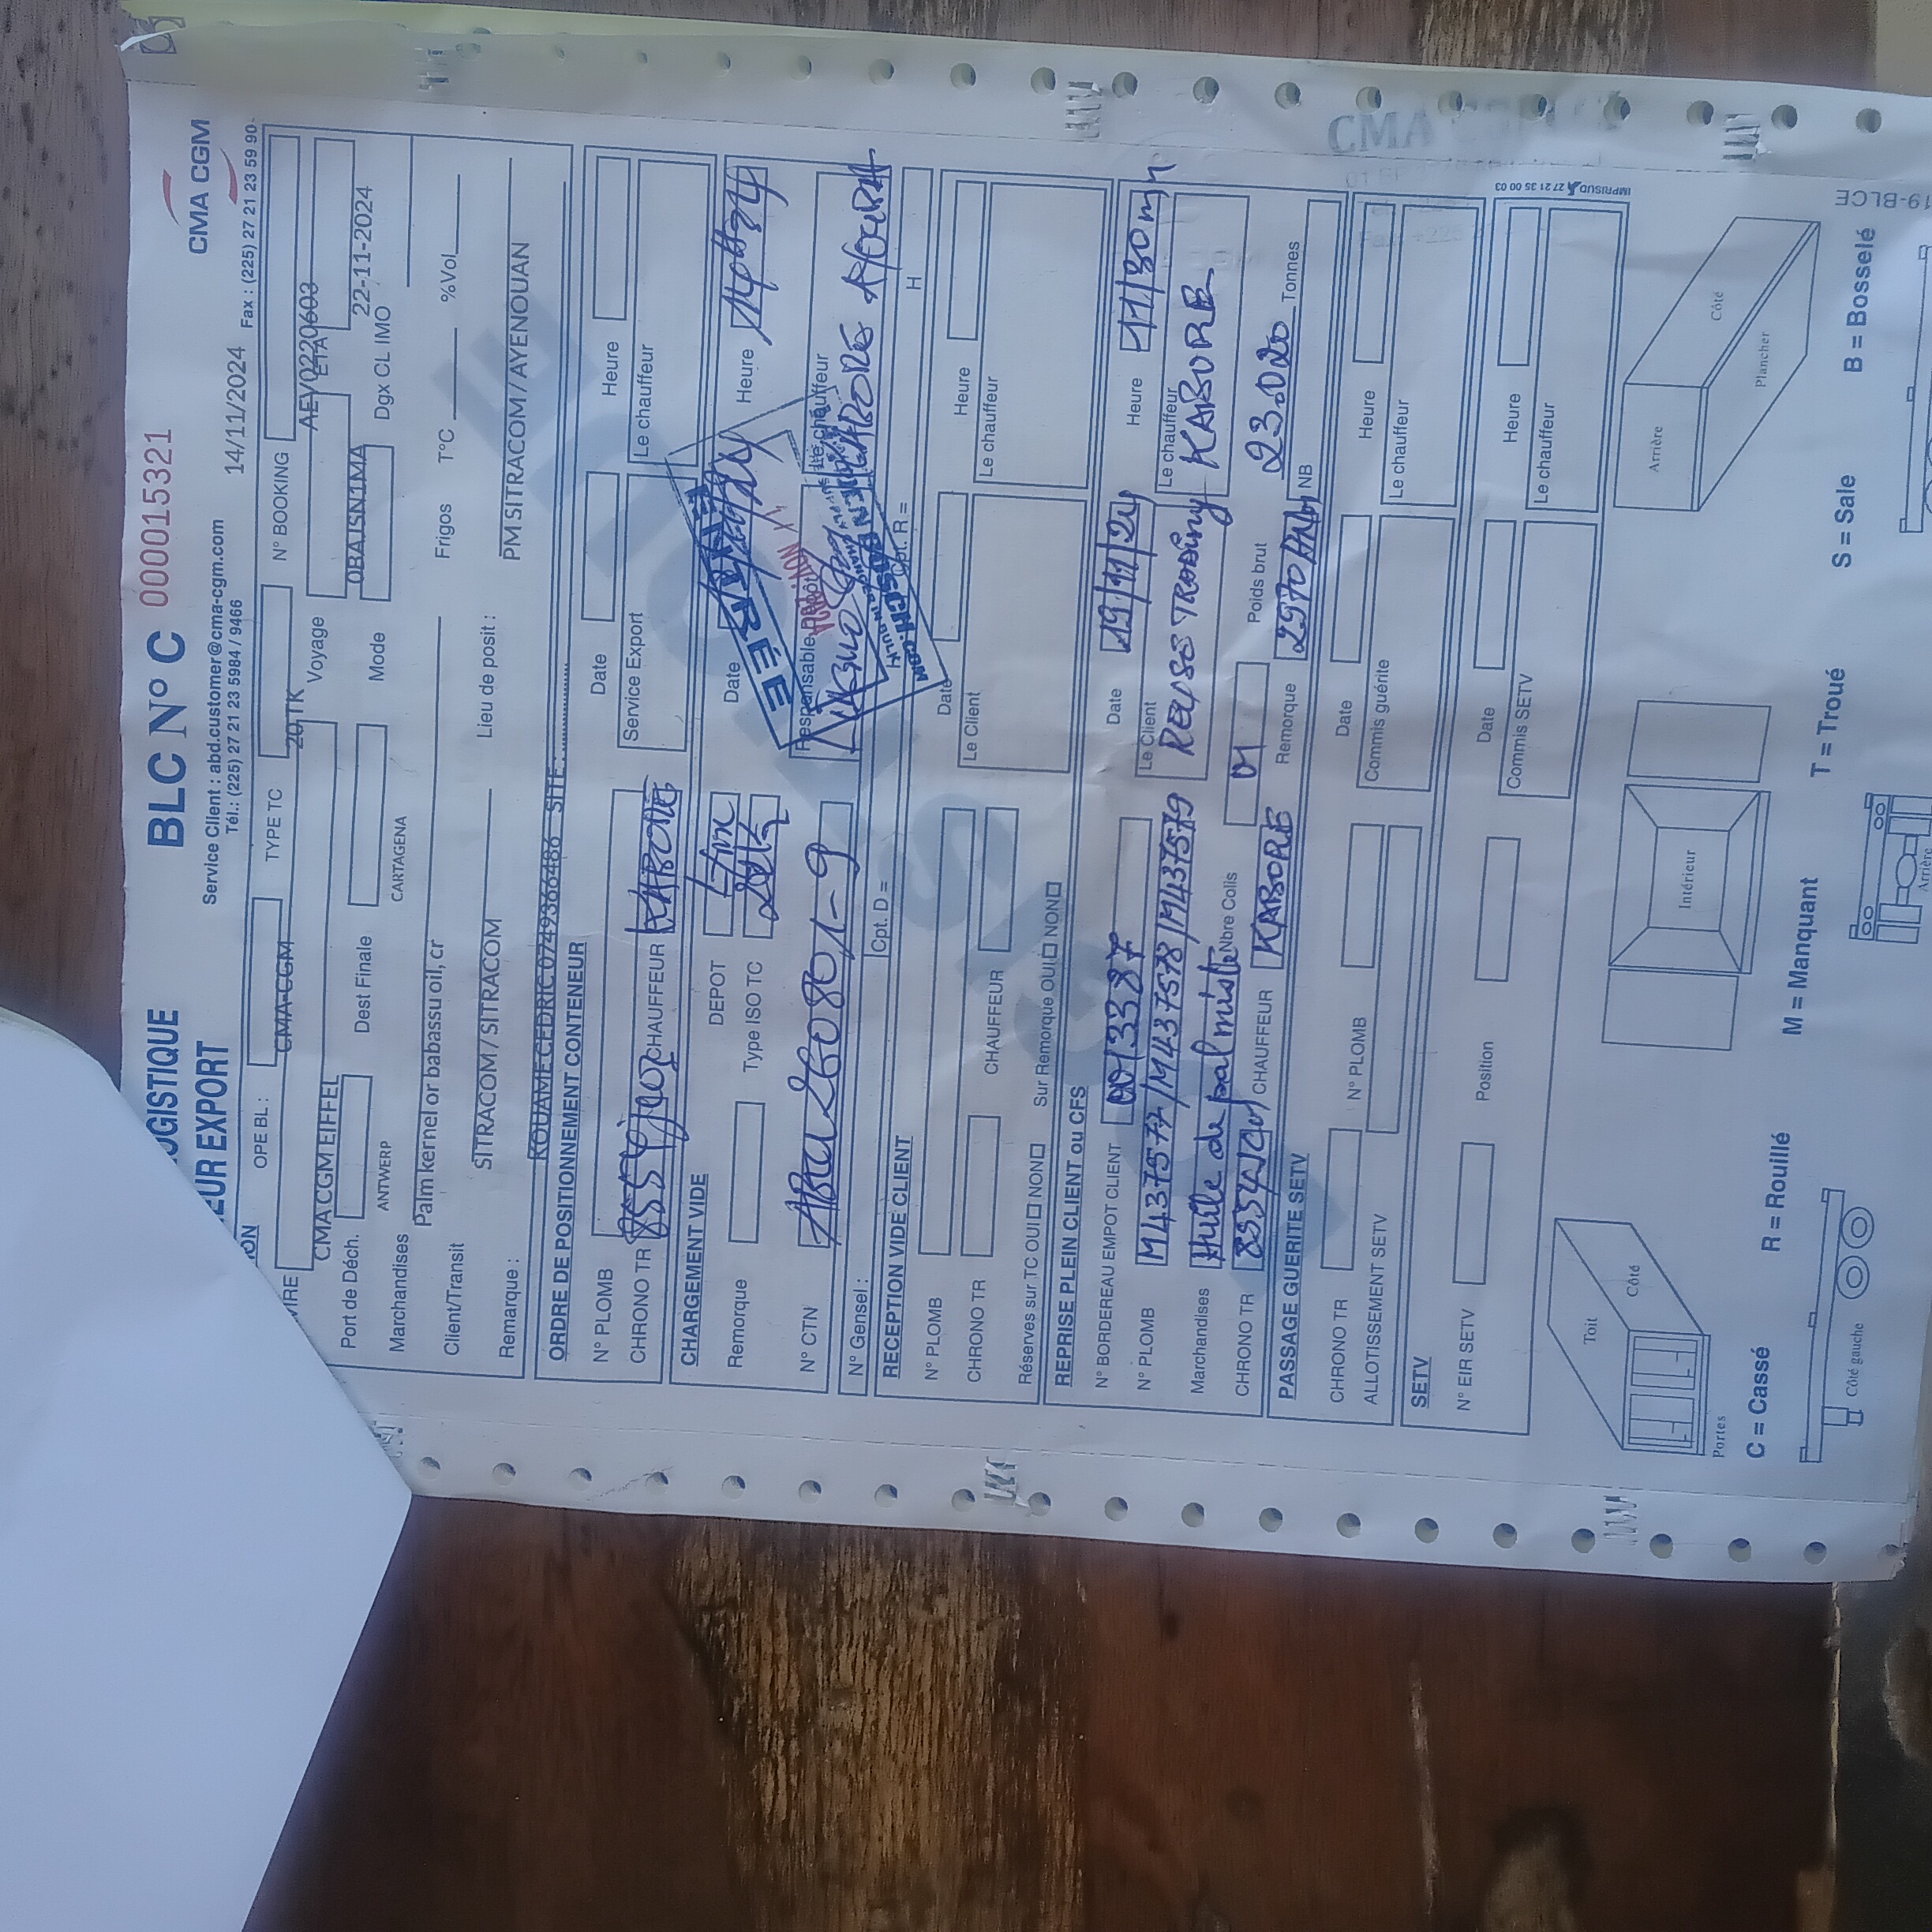 OGISTIQUE
EUR EXPORT
BLC N° C 000015321
CMA CGM
Service Client : abd.customer@cma-cgm.com
Tél.: (225) 27 21 23 5984 / 9466
14/11/2024
Fax : (225) 27 21 23 59 90
ION
OPE BL : CMA-CGM
TYPE TC 20 TK
N° BOOKING AEV0220603
VIRE CMA CGM EIFFEL
Voyage 0BAJSN1MA
ETA 22-11-2024
Port de Déch. ANTWERP
Dest Finale CARTAGENA
Mode
Dgx CL IMO
Marchandises Palm kernel or babassu oil, cr
Frigos T°C %Vol
Client/Transit SITRACOM / SITRACOM
Lieu de posit : PM SITRACOM / AYENOUAN
Remarque : KOUAME CEDRIC 0749366486 SITE : ...................
ORDRE DE POSITIONNEMENT CONTENEUR
Date Heure
N° PLOMB
Service Export Le chauffeur
CHRONO TR CHAUFFEUR KABORE
CHARGEMENT VIDE
DEPOT
Date
Heure
Remorque Type ISO TC
ENTRÉE
N° CTN ABCU 260801-9
Responsable Dépôt
Le chauffeur
KABORE
N° Gensel : Cpt. D = Cpt. R = H
RECEPTION VIDE CLIENT
N° PLOMB Date Heure
CHRONO TR CHAUFFEUR
Le Client Le chauffeur
Réserves sur TC OUI NON Sur Remorque OUI NON
REPRISE PLEIN CLIENT ou CFS
N° BORDEREAU EMPOT CLIENT 0013387
Date 19/11/24
Heure 11/30mn
N° PLOMB M437577/M437578/M437579
Le Client
Le chauffeur KABORE
Marchandises Huile de palmiste Nbre Colis 01
Poids brut 23.020 Tonnes
CHRONO TR CHAUFFEUR KABORE Remorque NB
PASSAGE GUERITE SETV
CHRONO TR N° PLOMB Date Heure
ALLOTISSEMENT SETV Commis guérite Le chauffeur
SETV
N° EIR SETV Position Date Heure
Commis SETV Le chauffeur
IMPRISUD 27 21 35 00 03
Toit
Côté
Portes
Intérieur
Arrière
Côté
Plancher
C = Cassé R = Rouillé M = Manquant T = Troué S = Sale B = Bosselé
Côté gauche
Arrière
19-BLCE